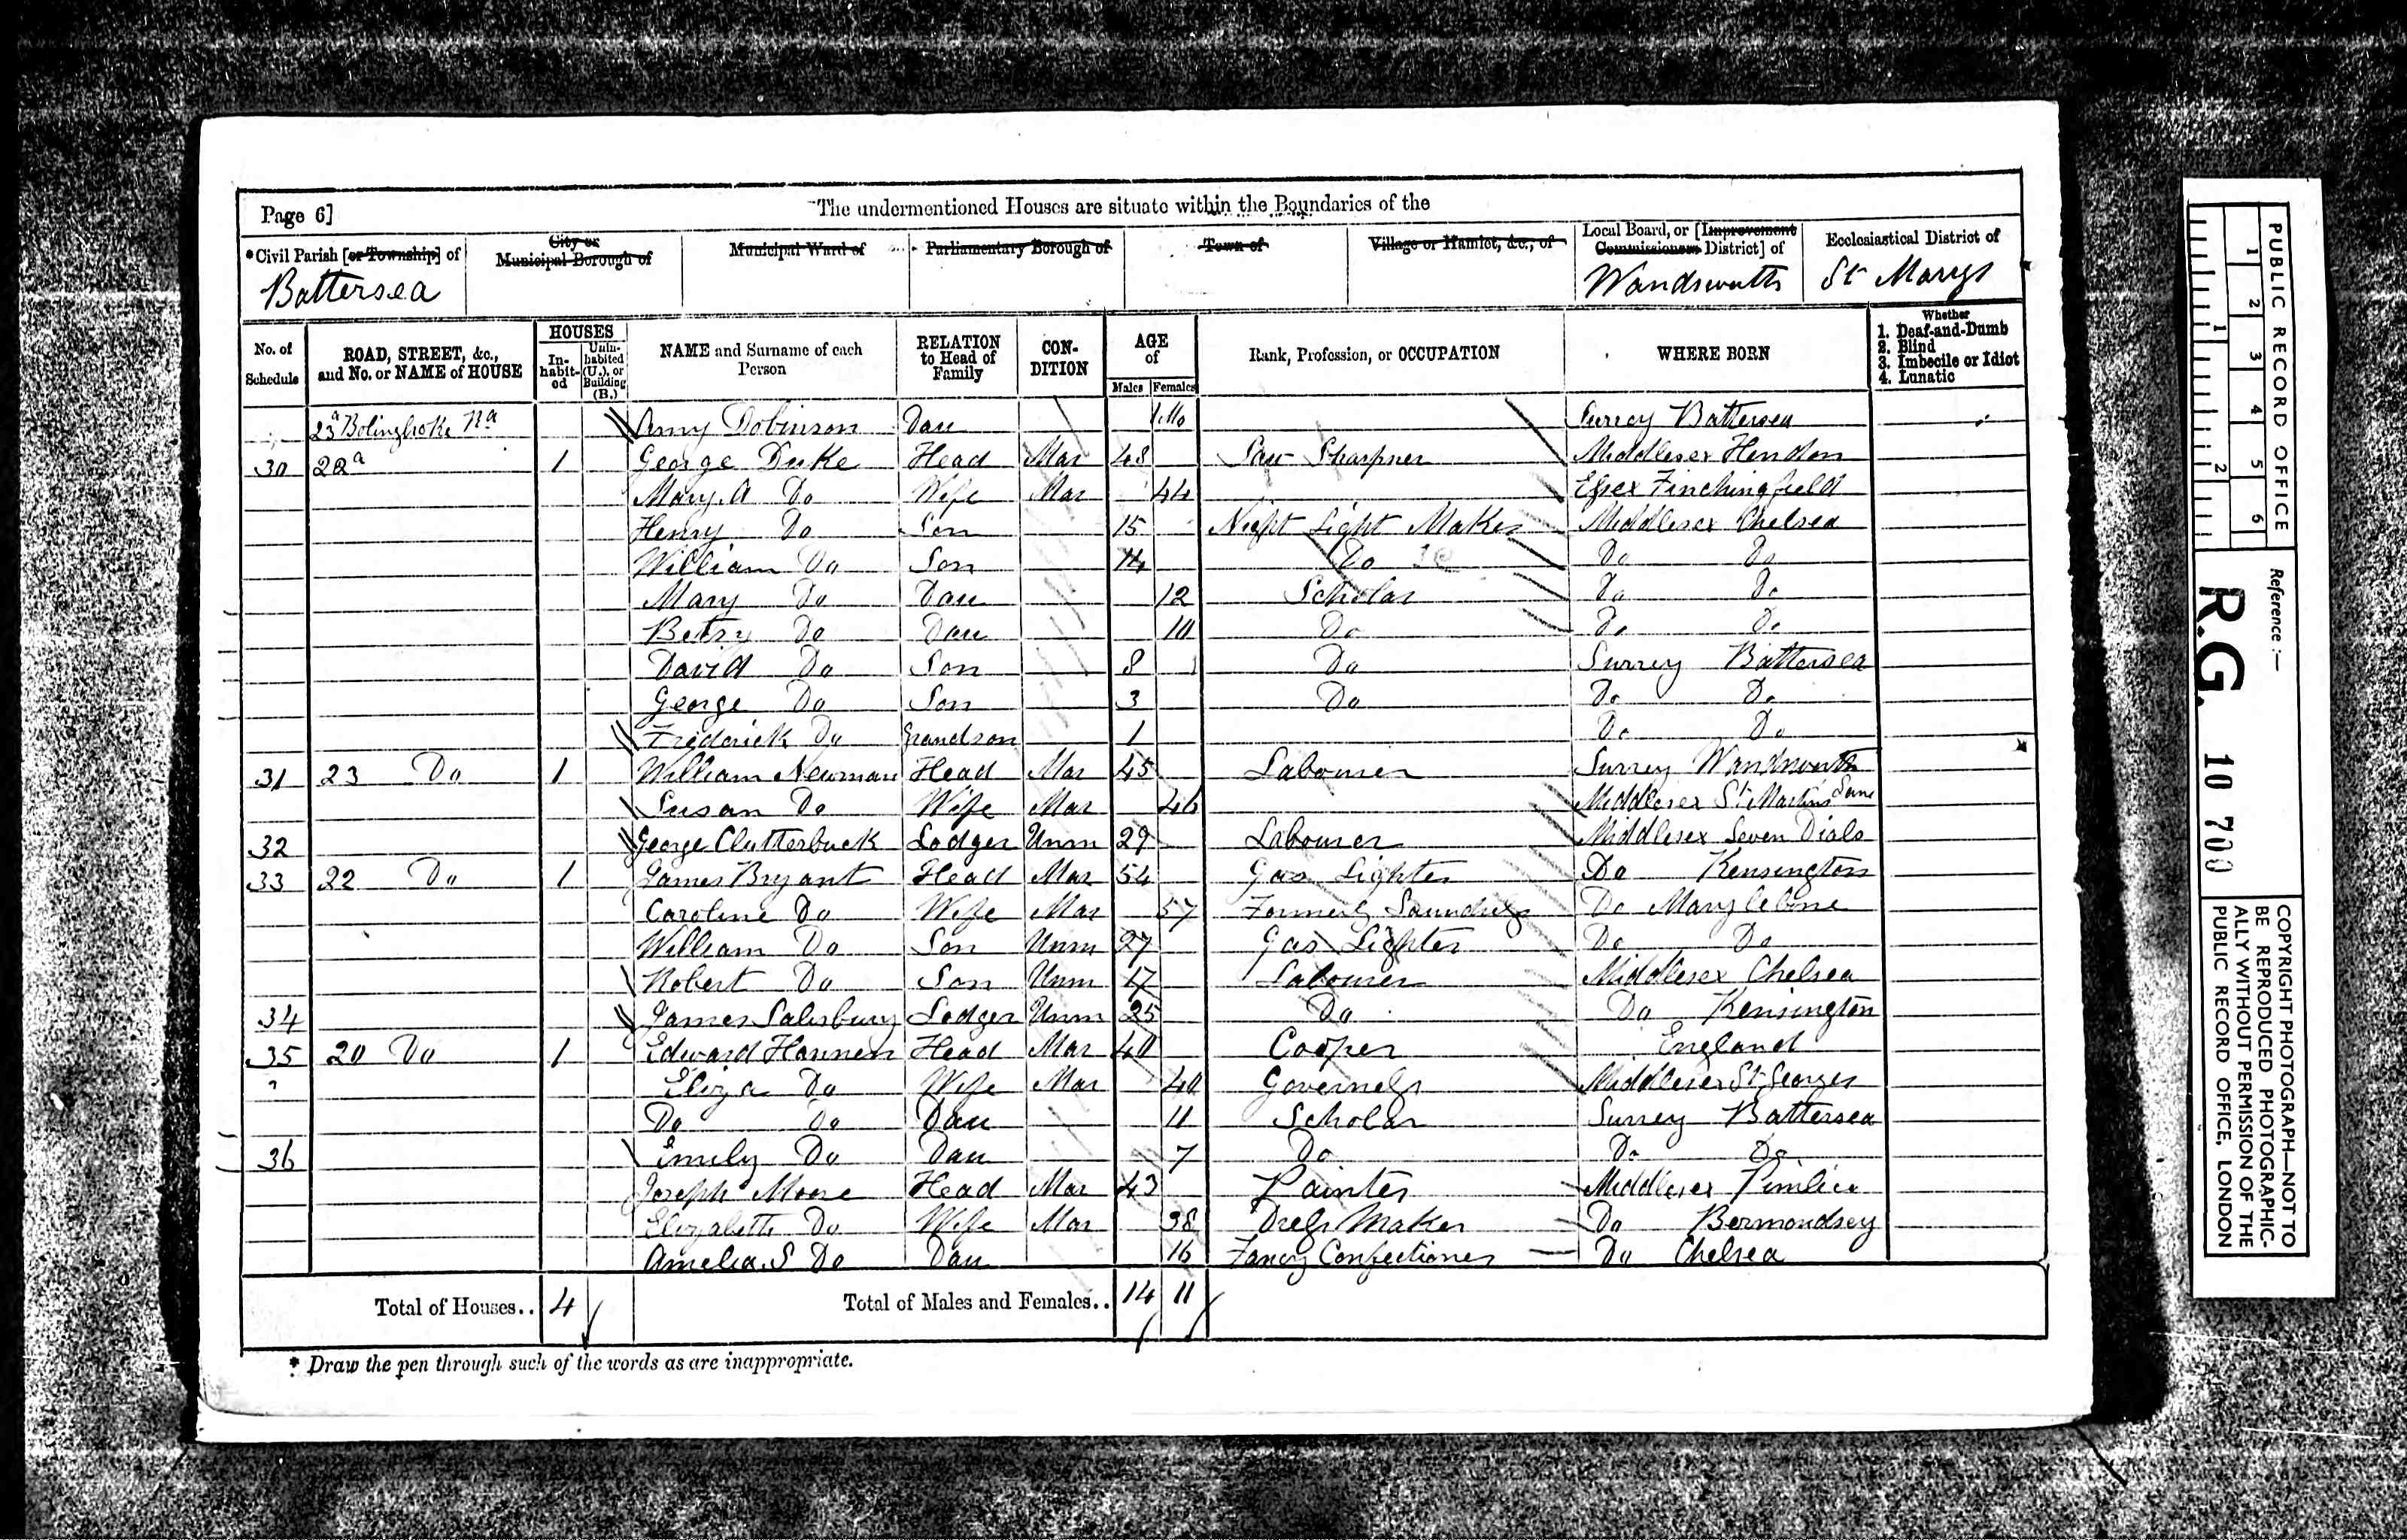 Page 6]
The undermentioned Houses are situate within the Boundaries of the
*Civil Parish [or Township] of
City or Municipal Borough of
Municipal Ward of
Parliamentary Borough of
Town of
Village or Hamlet, &c., of
Local Board, or [Improvement Commissioners District] of
Ecclesiastical District of
Battersea
Wandsworth
St Marys
No. of Schedule
ROAD, STREET, &c., and No. or NAME of HOUSE
HOUSES
In-habit-ed
Unin-habited (U.), or Building (B.)
NAME and Surname of each Person
RELATION to Head of Family
CON-DITION
AGE of
Males
Females
Rank, Profession, or OCCUPATION
WHERE BORN
Whether
1. Deaf-and-Dumb
2. Blind
3. Imbecile or Idiot
4. Lunatic
23a Bolingbroke Amy Dobinson Dau 1Mo Surrey Battersea
30 22a 1 George Duke Head Mar 48 Saw Sharpner Middlesex Hendon
Mary A Do Wife Mar 44 Essex Finchingfield
Henry Do Son 15 Night Light Maker Middlesex Chelsea
William Do Son 14 Do Do Do
Mary Do Dau 12 Scholar Do Do
Betsy Do Dau 10 Do Do Do
David Do Son 8 Do Surrey Battersea
George Do Son 3 Do Do Do
Frederick Do Grandson 1 Do Do
31 23 Do 1 William Newman Head Mar 45 Labourer Surrey Wandsworth
Susan Do Wife Mar 46 Middlesex St Martins Lane
32 George Clutterbuck Lodger Unm 29 Labourer Middlesex Seven Dials
33 22 Do 1 James Bryant Head Mar 54 Gas Lighter Do Kensington
Caroline Do Wife Mar 57 Formerly Laundress Do Marylebone
William Do Son Unm 27 Gas Lighter Do Do
Robert Do Son Unm 17 Labourer Middlesex Chelsea
34 James Salisbury Lodger Unm 25 Do Do Kensington
35 20 Do 1 Edward Hannen Head Mar 40 Cooper England
Eliza Do Wife Mar 40 Governess Middlesex St Georges
Do Do Dau 11 Scholar Surrey Battersea
36 Emily Do Dau 7 Do Do Do
Joseph Moore Head Mar 43 Painter Middlesex Pimlico
Elizabeth Do Wife Mar 38 Dress Maker Do Bermondsey
Amelia S Do Dau 16 Fancy Confectioner Do Chelsea
Total of Houses.. 4
Total of Males and Females.. 14 11
* Draw the pen through such of the words as are inappropriate.
PUBLIC RECORD OFFICE
1 2 3 4 5 6
1 2
Reference:—
R.G. 10 700
COPYRIGHT PHOTOGRAPH—NOT TO
BE REPRODUCED PHOTOGRAPHIC-
ALLY WITHOUT PERMISSION OF THE
PUBLIC RECORD OFFICE, LONDON